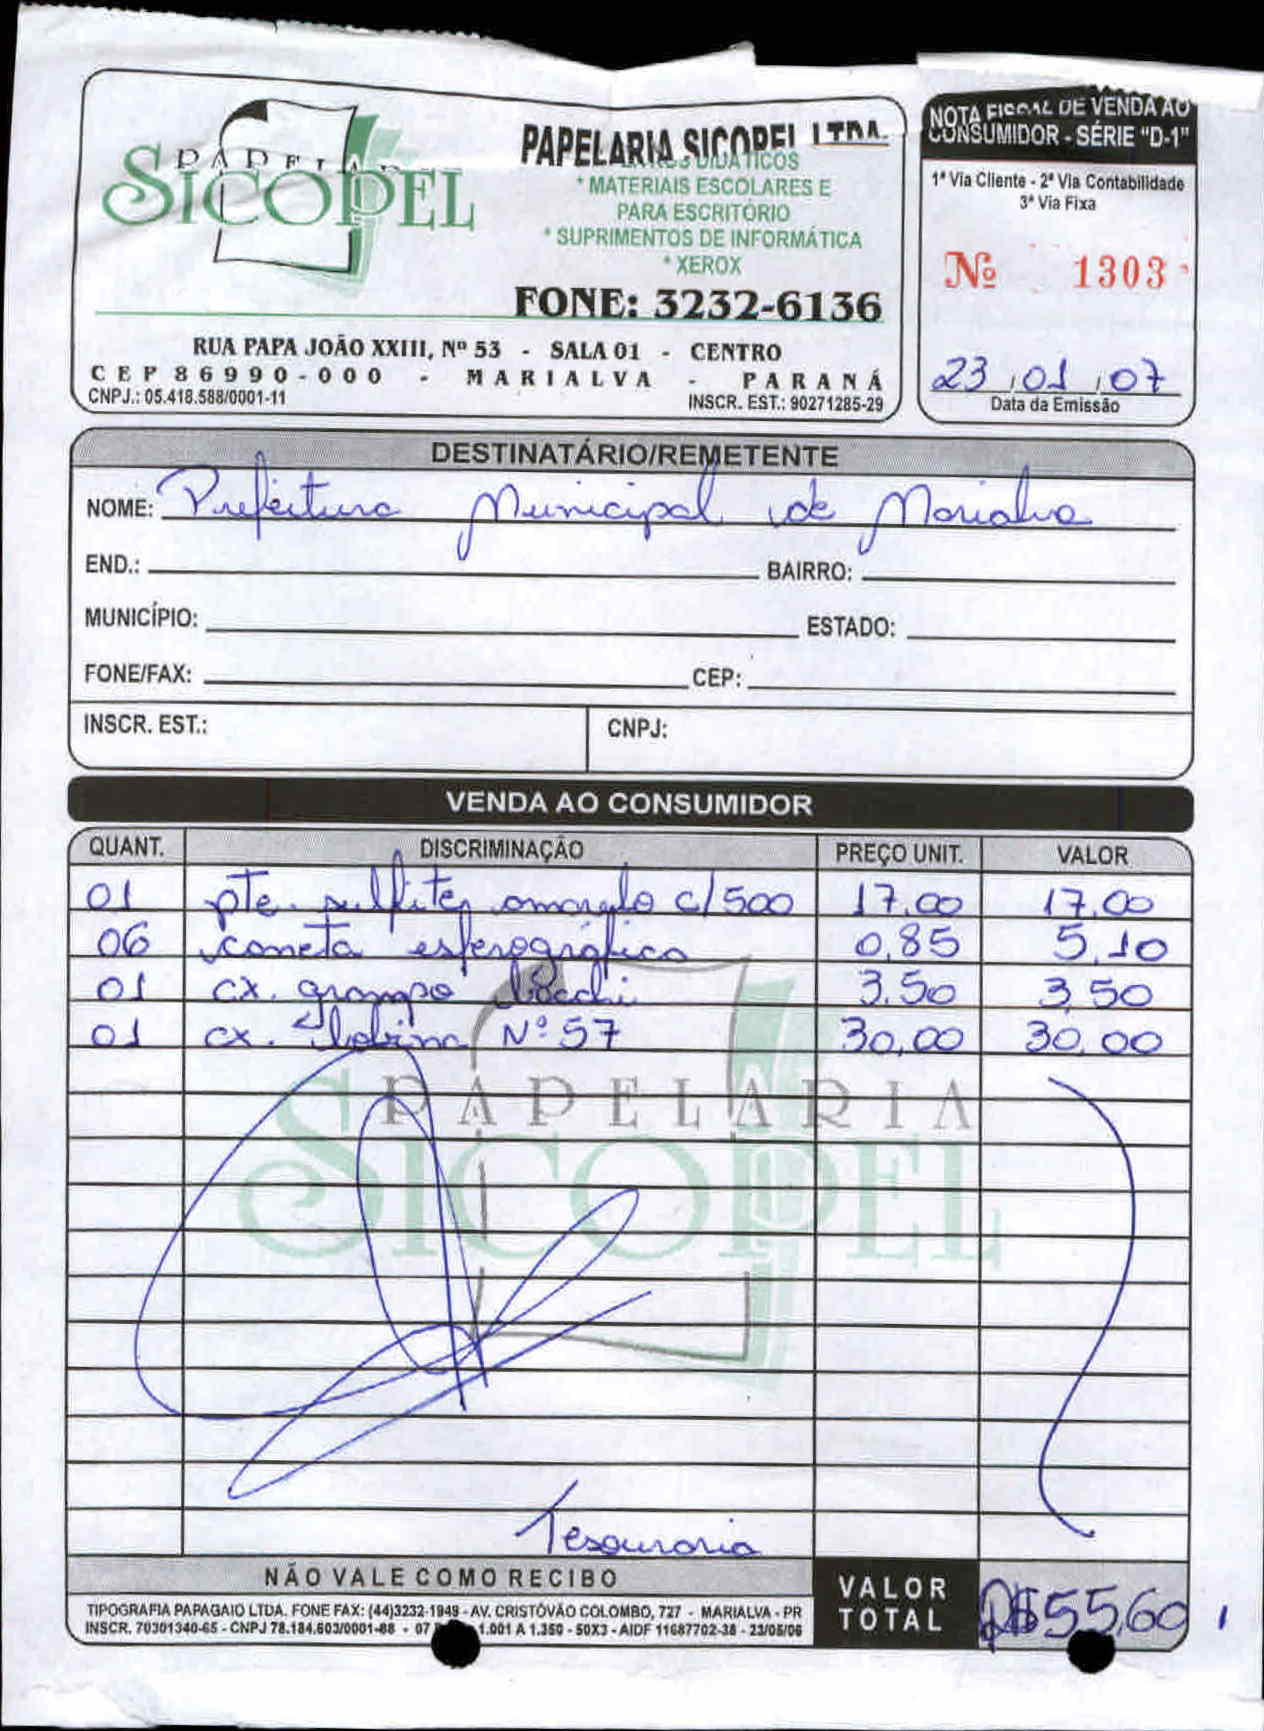 PAPELARIA
SICOPEL
PAPELARIA SICOPEL LTDA.
DIDÁTICOS
* MATERIAIS ESCOLARES E
PARA ESCRITÓRIO
* SUPRIMENTOS DE INFORMÁTICA
* XEROX
FONE: 3232-6136
RUA PAPA JOÃO XXIII, Nº 53 - SALA 01 - CENTRO
CEP 86990-000 - MARIALVA - PARANÁ
CNPJ.: 05.418.588/0001-11 INSCR. EST.: 90271285-29
NOTA FISCAL DE VENDA AO
CONSUMIDOR - SÉRIE "D-1"
1ª Via Cliente - 2ª Via Contabilidade
3ª Via Fixa
Nº 1303
23/01/07
Data da Emissão
DESTINATÁRIO/REMETENTE
NOME: Prefeitura Municipal de Marialva
END.: BAIRRO:
MUNICÍPIO: ESTADO:
FONE/FAX: CEP:
INSCR. EST.: CNPJ:
VENDA AO CONSUMIDOR
QUANT. DISCRIMINAÇÃO PREÇO UNIT. VALOR
01 pte. sulfite amarelo c/500 17,00 17,00
06 caneta esferográfica 0,85 5,10
01 cx. grampo 3,50 3,50
01 cx. bobina Nº 57 30,00 30,00
PAPELARIA
SICOPEL
Tesouraria
NÃO VALE COMO RECIBO
TIPOGRAFIA PAPAGAIO LTDA. FONE FAX: (44)3232-1949 - AV. CRISTÓVÃO COLOMBO, 727 - MARIALVA - PR
INSCR. 70301340-65 - CNPJ 78.184.603/0001-88 - 07 1.001 A 1.350 - 50X3 - AIDF 11687702-38 - 23/05/06
VALOR
TOTAL R$55,60